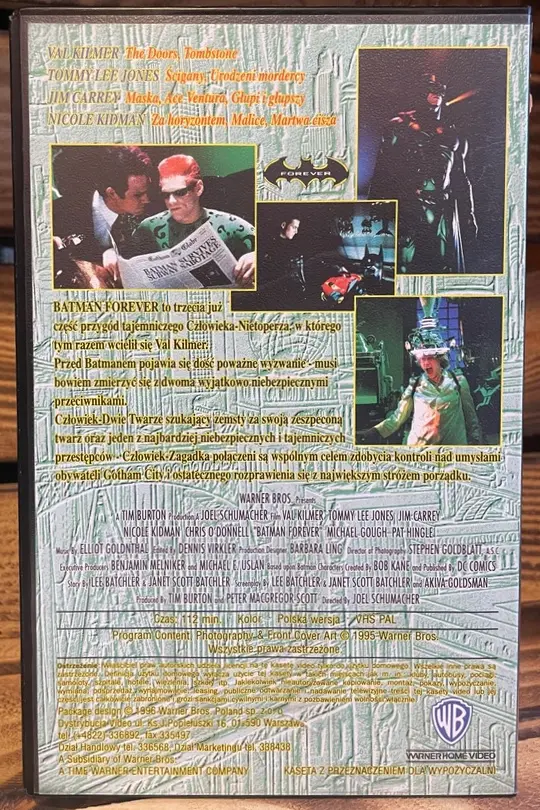 VAL KILMER The Doors, Tombstone
TOMMY LEE JONES Ścigany, Urodzeni mordercy
JIM CARREY Maska, Ace Ventura, Głupi i głupszy
NICOLE KIDMAN Za horyzontem, Malice, Martwa cisza
FOREVER
Gotham Globe
BATMAN SURVIVES
SUBWAY SABOTAGE
BATMAN FOREVER to trzecia już
część przygód tajemniczego Człowieka-Nietoperza, w którego
tym razem wcielił się Val Kilmer.
Przed Batmanem pojawia się dość poważne wyzwanie - musi
bowiem zmierzyć się z dwoma wyjątkowo niebezpiecznymi
przeciwnikami.
Człowiek-Dwie Twarze szukający zemsty za swoją zeszpeconą
twarz oraz jeden z najbardziej niebezpiecznych i tajemniczych
przestępców - Człowiek-Zagadka połączeni są wspólnym celem zdobycia kontroli nad umysłami
obywateli Gotham City i ostatecznego rozprawienia się z największym stróżem porządku.
WARNER BROS. Presents
A TIM BURTON Production A JOEL SCHUMACHER Film VAL KILMER TOMMY LEE JONES JIM CARREY
NICOLE KIDMAN CHRIS O'DONNELL "BATMAN FOREVER" MICHAEL GOUGH PAT HINGLE
Music By ELLIOT GOLDENTHAL Edited By DENNIS VIRKLER Production Designer BARBARA LING Director of Photography STEPHEN GOLDBLATT A.S.C.
Executive Producers BENJAMIN MELNIKER and MICHAEL E. USLAN Based upon Batman Characters Created By BOB KANE and Published By DC COMICS
Story By LEE BATCHLER & JANET SCOTT BATCHLER Screenplay By LEE BATCHLER & JANET SCOTT BATCHLER and AKIVA GOLDSMAN
Produced By TIM BURTON and PETER MACGREGOR-SCOTT Directed By JOEL SCHUMACHER
Czas: 112 min. Kolor Polska wersja VHS PAL
Program Content, Photography & Front Cover Art © 1995 Warner Bros.
Wszystkie prawa zastrzeżone.
Ostrzeżenie: Właściciel praw autorskich udziela licencji na tę kasetę video tylko do użytku domowego. Wszelkie inne prawa są
zastrzeżone. Definicja użytku domowego wyklucza użycie tej kasety w takich miejscach jak m.in. kluby, autobusy, pociągi,
szpitale, hotele, więzienia, szkoły itp. Jakiekolwiek nieautoryzowane kopiowanie, montaż, pokazy, wypożyczanie,
wymiana, odsprzedaż, wynajmowanie, leasing, publiczne odtwarzanie i nadawanie telewizyjne treści tej kasety video lub jej
części jest całkowicie zabronione i grozi sankcjami cywilnymi i karnymi z pozbawieniem wolności włącznie.
Package design © 1996 Warner Bros. Poland sp. z o.o.
Dystrybucja Video ul. Ks.J.Popiełuszki 16, 01-590 Warszawa
tel. (+4822) 336892, fax 335497
Dział Handlowy tel. 336568, Dział Marketingu tel. 388438
A Subsidiary of Warner Bros.
A TIME WARNER ENTERTAINMENT COMPANY
WB
WARNER HOME VIDEO
KASETA Z PRZEZNACZENIEM DLA WYPOŻYCZALNI